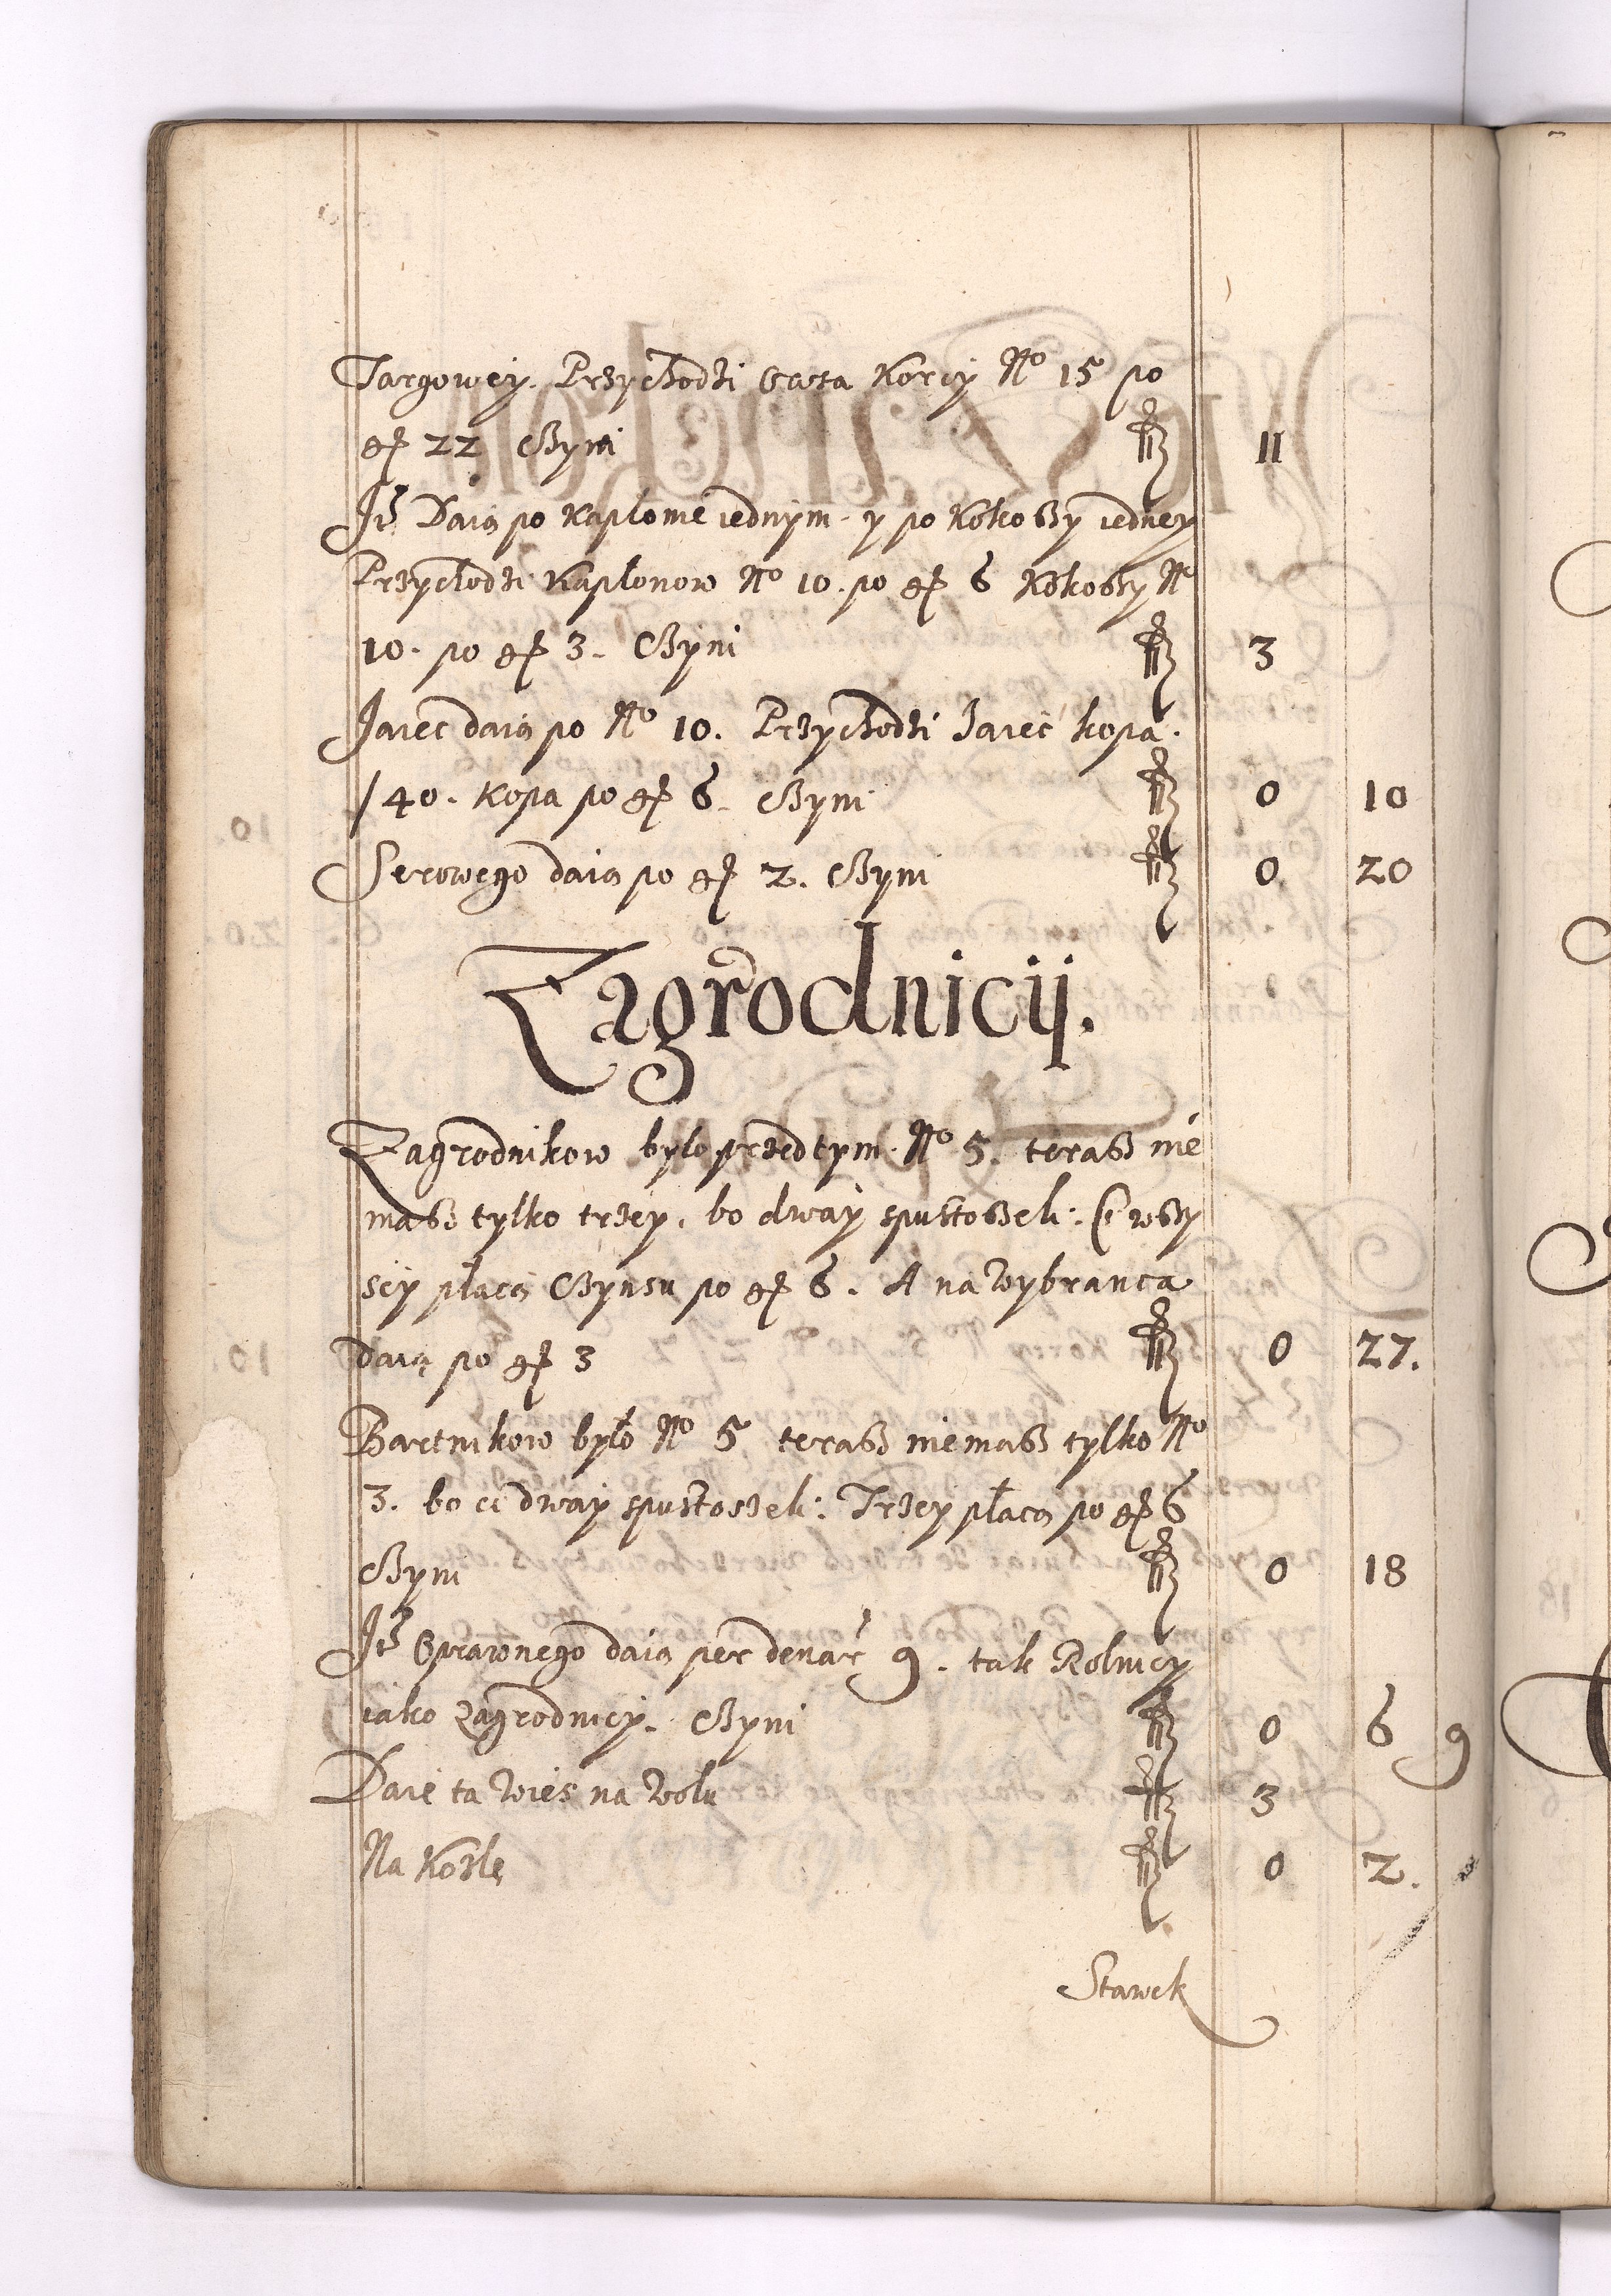 Targowey. Przychodzi Owsa Korcy No 15 po
gr 22 Czyni fl 11
It. Daią po Kapłonie iednym y po Kokoszy iedney
Przychodzi Kapłonow No 10. po gr 6 Kokoszy No
10. po gr 3. Czyni fl 3
Jaiec daią po No 10. Przychodzi Jaiec kopa.
1/40. Kopa po gr 6. Czyni fl 0 10
Serowego daią po gr 2. Czyni fl 0 20
Zagrodnicy.
Zagrodnikow było przedtym No 5. terasz nie
masz tylko trzey, bo dway spustoszeli: Ci wszy
scy płacą Czynszu po gr 6. A na Wybranca
daią po gr 3 fl 0 27.
Bartnikow było No 5 terasz niemasz tylko No
3. bo ci dway spustoszeli: Trzey płacą po gr 6
Czyni fl 0 18
It. Oprawnego daią per denar 9. tak Rolnicy
iako Zagrodnicy. Czyni fl 0 6 9
Daie ta Wies na Wołu fl 3
Na Kozlę fl 0 2.
Stawek